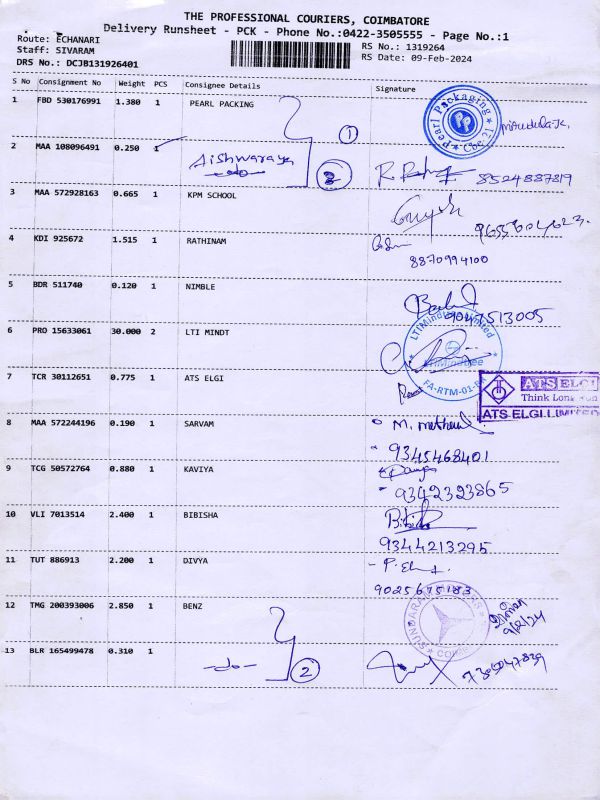 THE PROFESSIONAL COURIERS, COIMBATORE
Delivery Runsheet - PCK - Phone No.:0422-3505555 - Page No.:1
Route: ECHANARI
Staff: SIVARAM
DRS No.: DCJB131926401
RS No.: 1319264
RS Date: 09-Feb-2024
S No Consignment No Weight PCS Consignee Details Signature
1 FBD 530176991 1.380 1 PEARL PACKING
Pearl Packaging Cbe
1
2 MAA 108096491 0.250 1 Aishwarya
do 8524887319
3 MAA 572928163 0.665 1 KPM SCHOOL
4 KDI 925672 1.515 1 RATHINAM
8870994100
5 BDR 511740 0.120 1 NIMBLE
9047513005
6 PRO 15633061 30.000 2 LTI MINDT
LTIMindtree Limited
LTIMindtree
FA-RTM-01
7 TCR 30112651 0.775 1 ATS ELGI
ATS ELGI
Think Long
ATS ELGI LIMITED
8 MAA 572244196 0.190 1 SARVAM
9345468401
9 TCG 50572764 0.880 1 KAVIYA
9342323865
10 VLI 7013514 2.400 1 BIBISHA
9344213295
11 TUT 886913 2.200 1 DIVYA
9025675183
12 TMG 200393006 2.850 1 BENZ
SUNDARAM
9/2/24
13 BLR 165499478 0.310 1
do 2